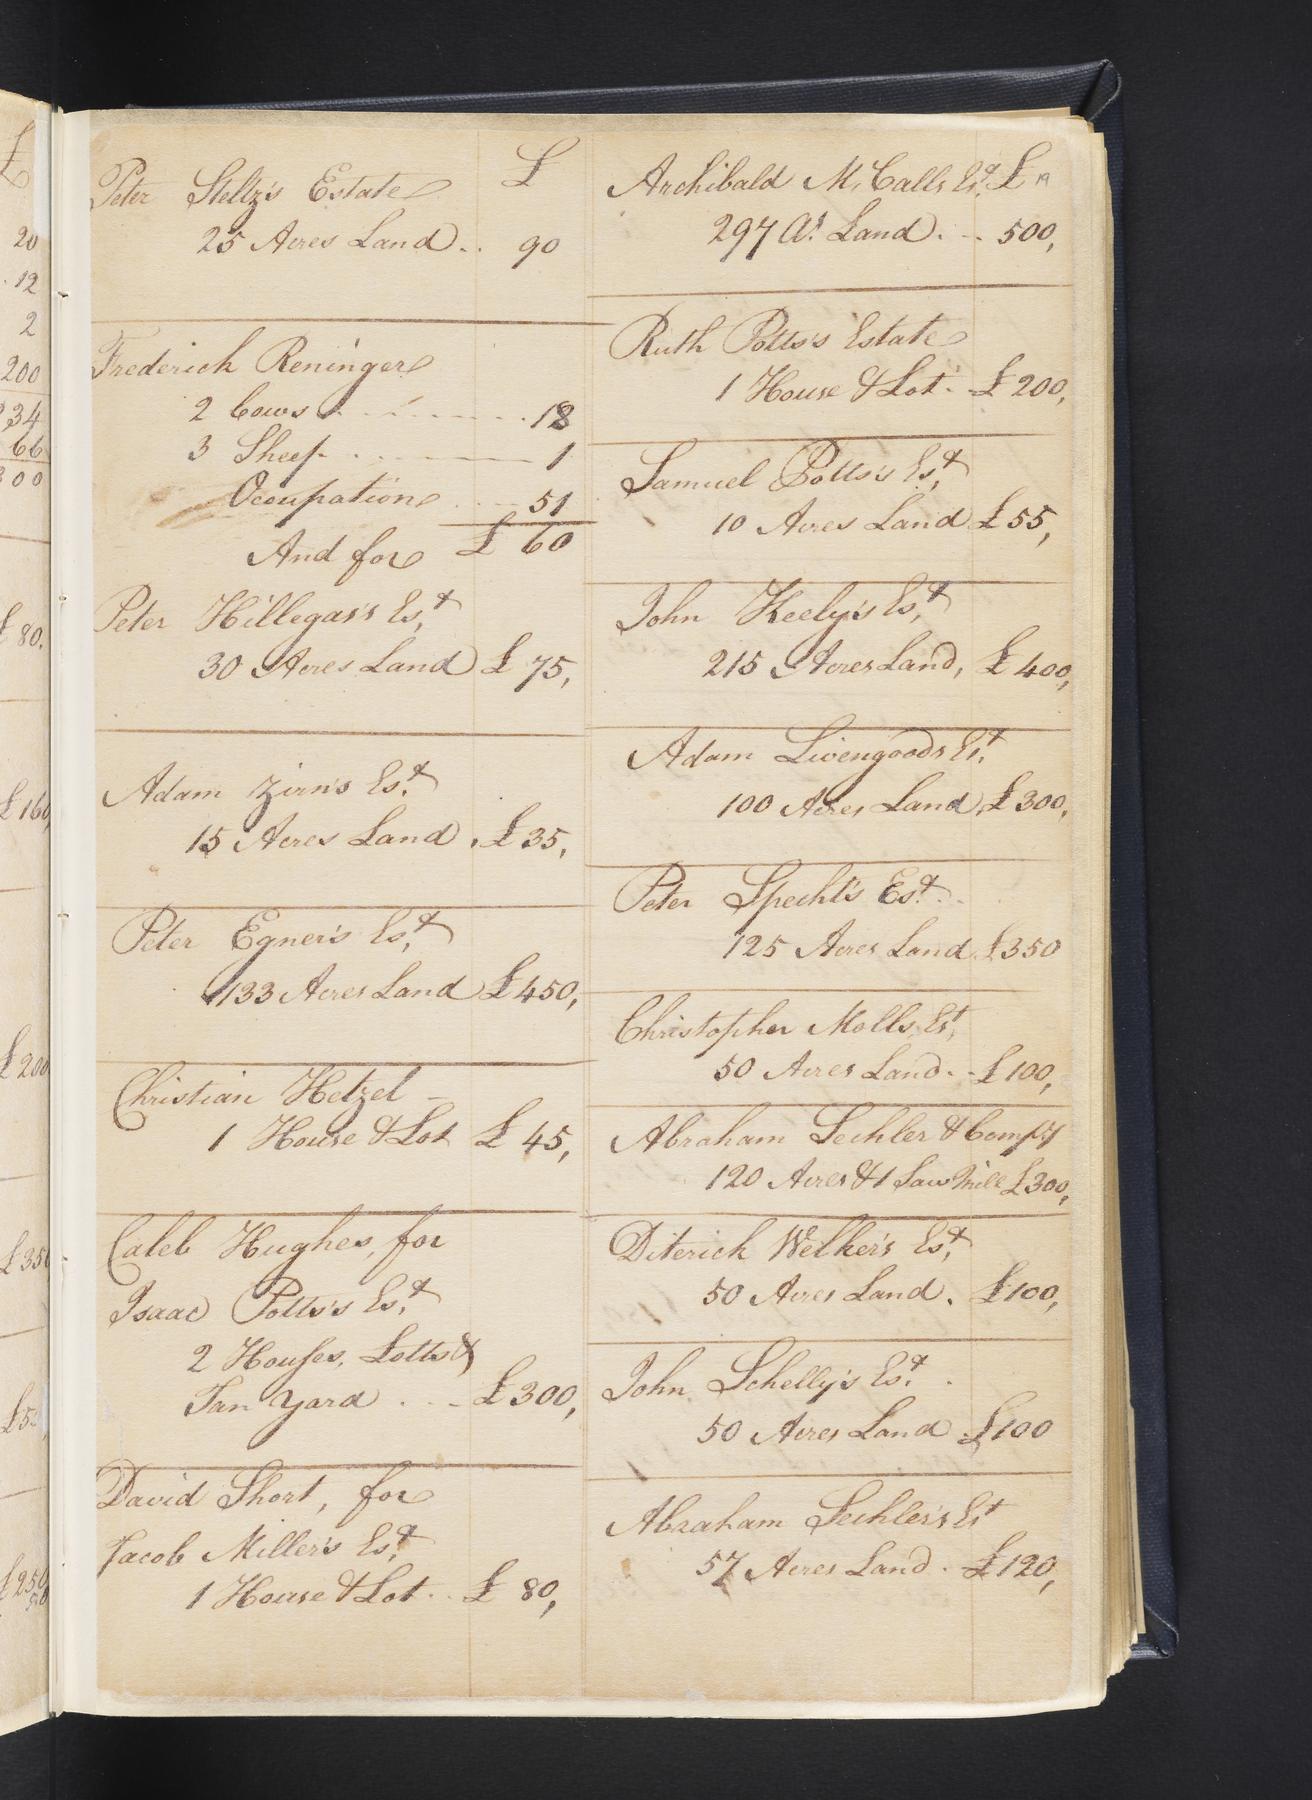 Peter Steltz's Estate £
25 Acres Land .. 90
Frederich Reninger
2 Cows . . . . 18
3 Sheep . . . 1
Occupation . . . 51
£ 60
And for
Peter Hillegas's Est.
30 Acres Land £ 75,
Adam Zirn's Est.
15 Acres Land . £ 35,
Peter Egner's Est.
133 Acres Land £ 450,
Christian Hetzel -
1 House & Lot £ 45,
Caleb Hughes, for
Isaac Potts's Est.
2 Houses, Lotts &
Tan Yard . . . £ 300,
David Short, for
Jacob Miller's Est.
1 House & Lot . . £ 80,
Archibald Mc Calls Est. £ 19
297 As. Land . . . 500,
Ruth Potts's Estate
1 House & Lot . . £ 200,
Samuel Potts's Est.
10 Acres Land £ 55,
John Keely's Est.
215 Acres Land, £ 400,
Adam Livengoods Est.
100 Acres Land, £ 300,
Peter Specht's Est. . .
125 Acres Land £ 350
Christopher Molls Est.
50 Acres Land . . £ 100,
Abraham Sechler & Compy
120 Acres & 1 Saw Mill £ 300,
Diterich Welker's Est.
50 Acres Land . £ 100,
John Schelly's Est. .
50 Acres Land . £ 100
Abraham Sechler's Est
57 Acres Land . £ 120,
20
12
2
200
34
66
00
£ 80.
£ 160,
£ 200
£ 35
£ 5
£ 250